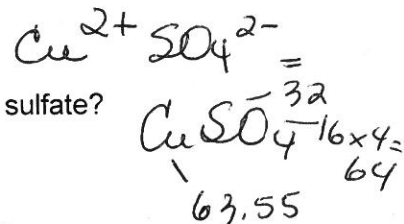 Cu²⁺ SO₄²⁻ =
sulfate?
CuSO₄ - 32
- 16 x 4 =
64
63.55